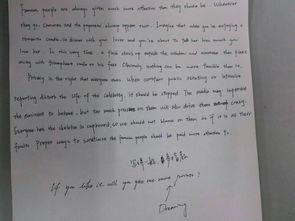 Famous people are always given much more attention than they should be. Wherever
they go, Cameras and the paparazzi always appear soon. Imagine that while you're enjoying a
romantic candle-lit dinner with your lover and you're about to tell her how much you
love her. In this very time, a flash shows up outside the window and someone flees
away with triumphant smile on his face. Obviously nothing can be more terrible than it.
Privacy is the right that everyone owns. When constant public scrutiny or intensive
reporting disturb the life of the celebrity, it should be stopped. The media may supervise
the eminent to behave, but too much pressure on them will also drive them crazy.
Everyone has the skeleton in cupboard, so we should not blame on them as if it is all their
faults. Proper ways to scrutinize the famous people should be paid more attention to.
If you like it, will you give me more praise?
Dreaming